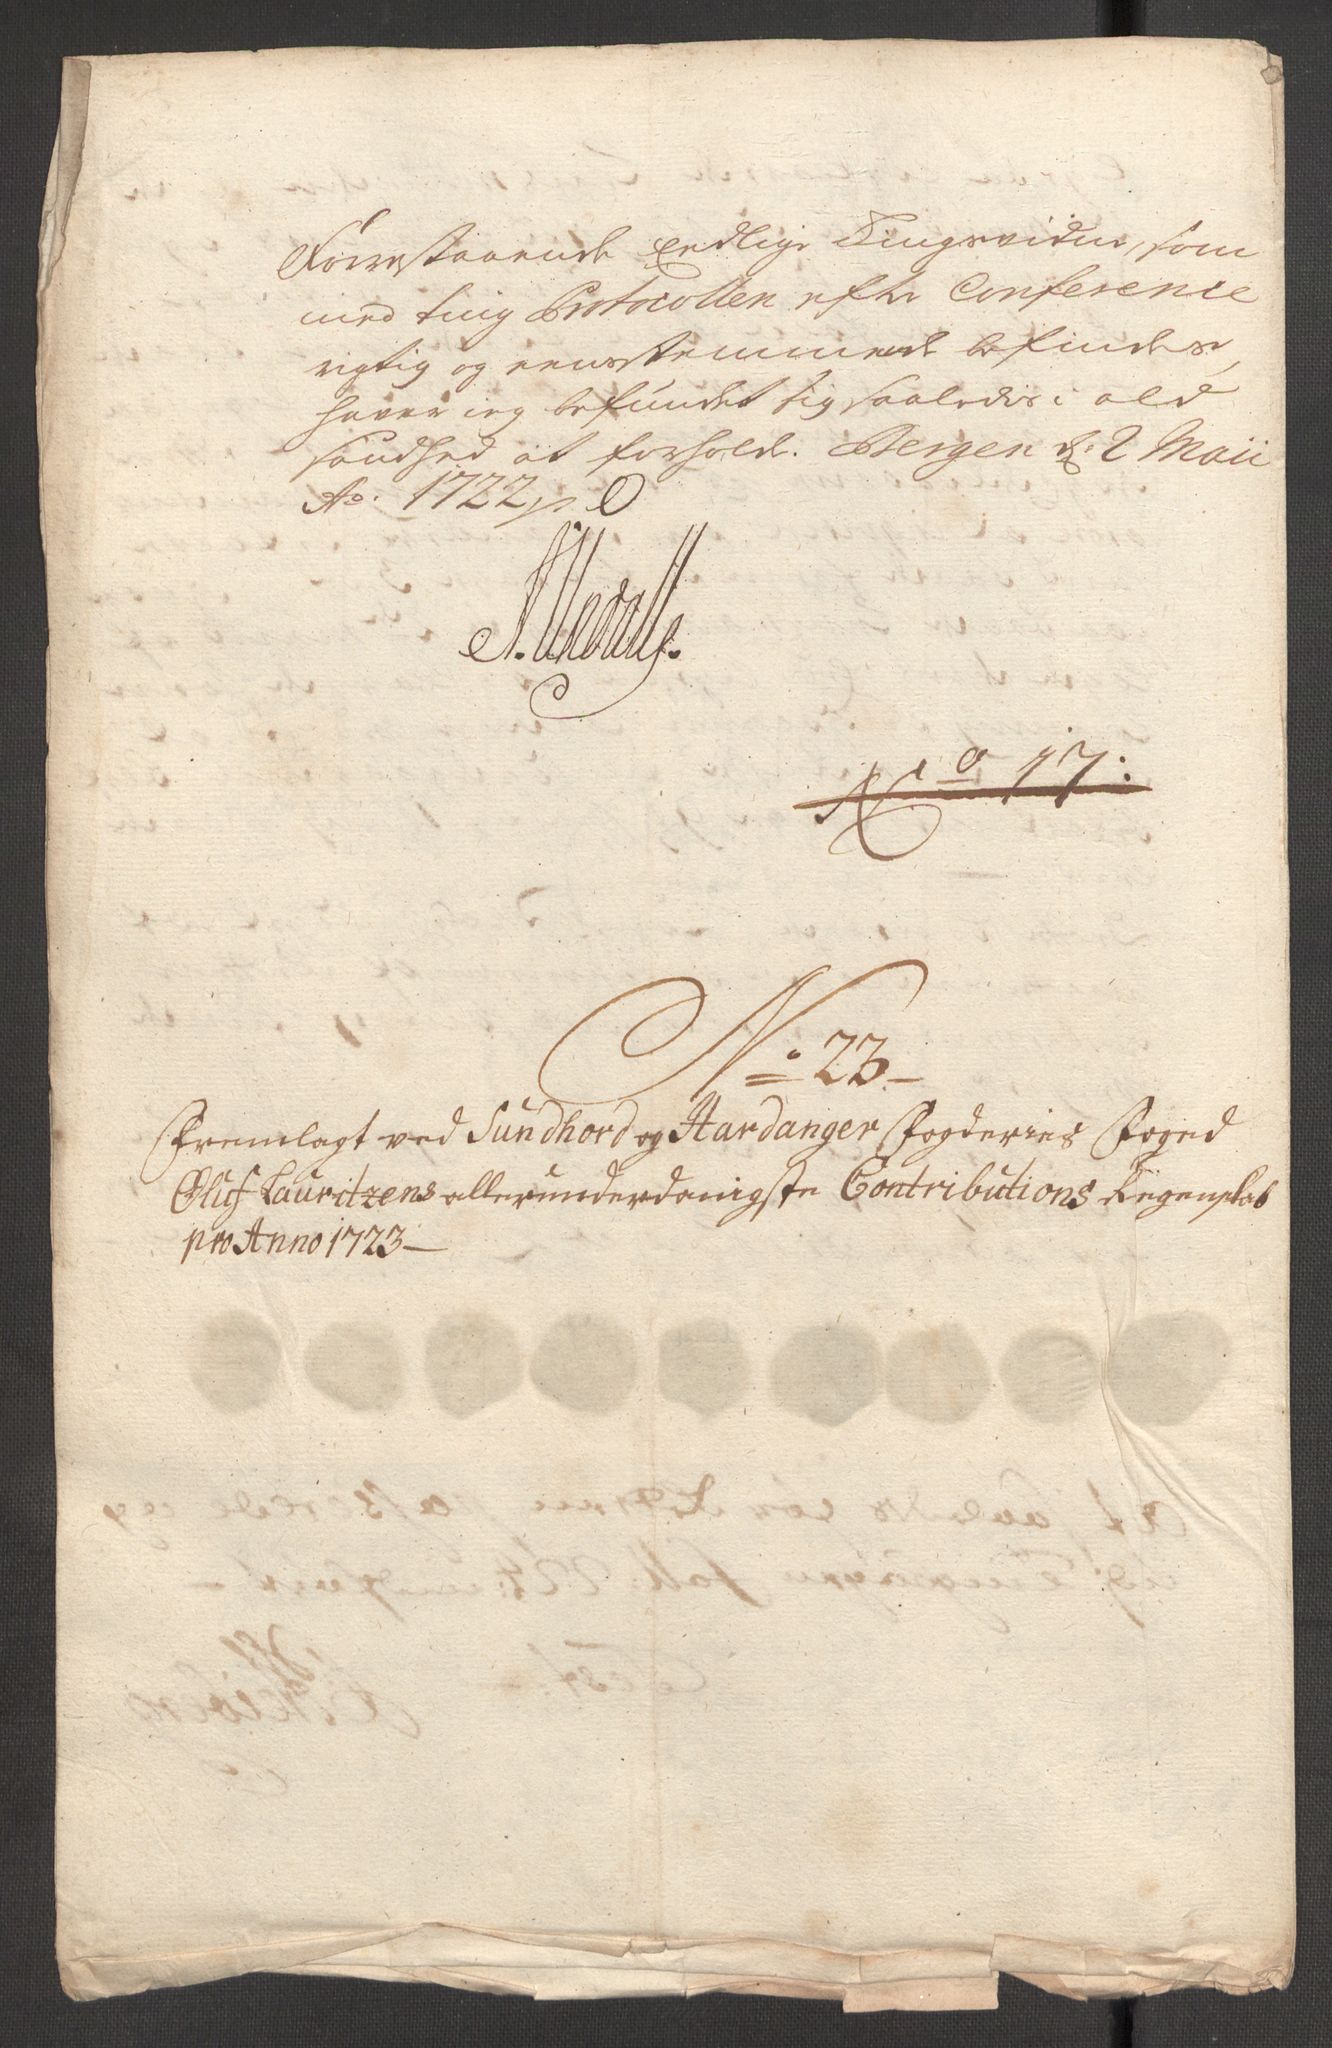 Forrestaaende Eedlige Tingsvidne, som
med ting Protocollen efter Conference
rigtig og eenstemmende befindes,
haver ieg befundet sig saaledis i ald
sandhed at forholde. Bergen d: 2 Maii
Ao. 1722
No 17:
No: 23
Fremlagt ved Sundhord og Hardanger Fogderies Foged
Oluf Lauritzens allerunderdanigste Contributions Regenskab
pro Anno 1723